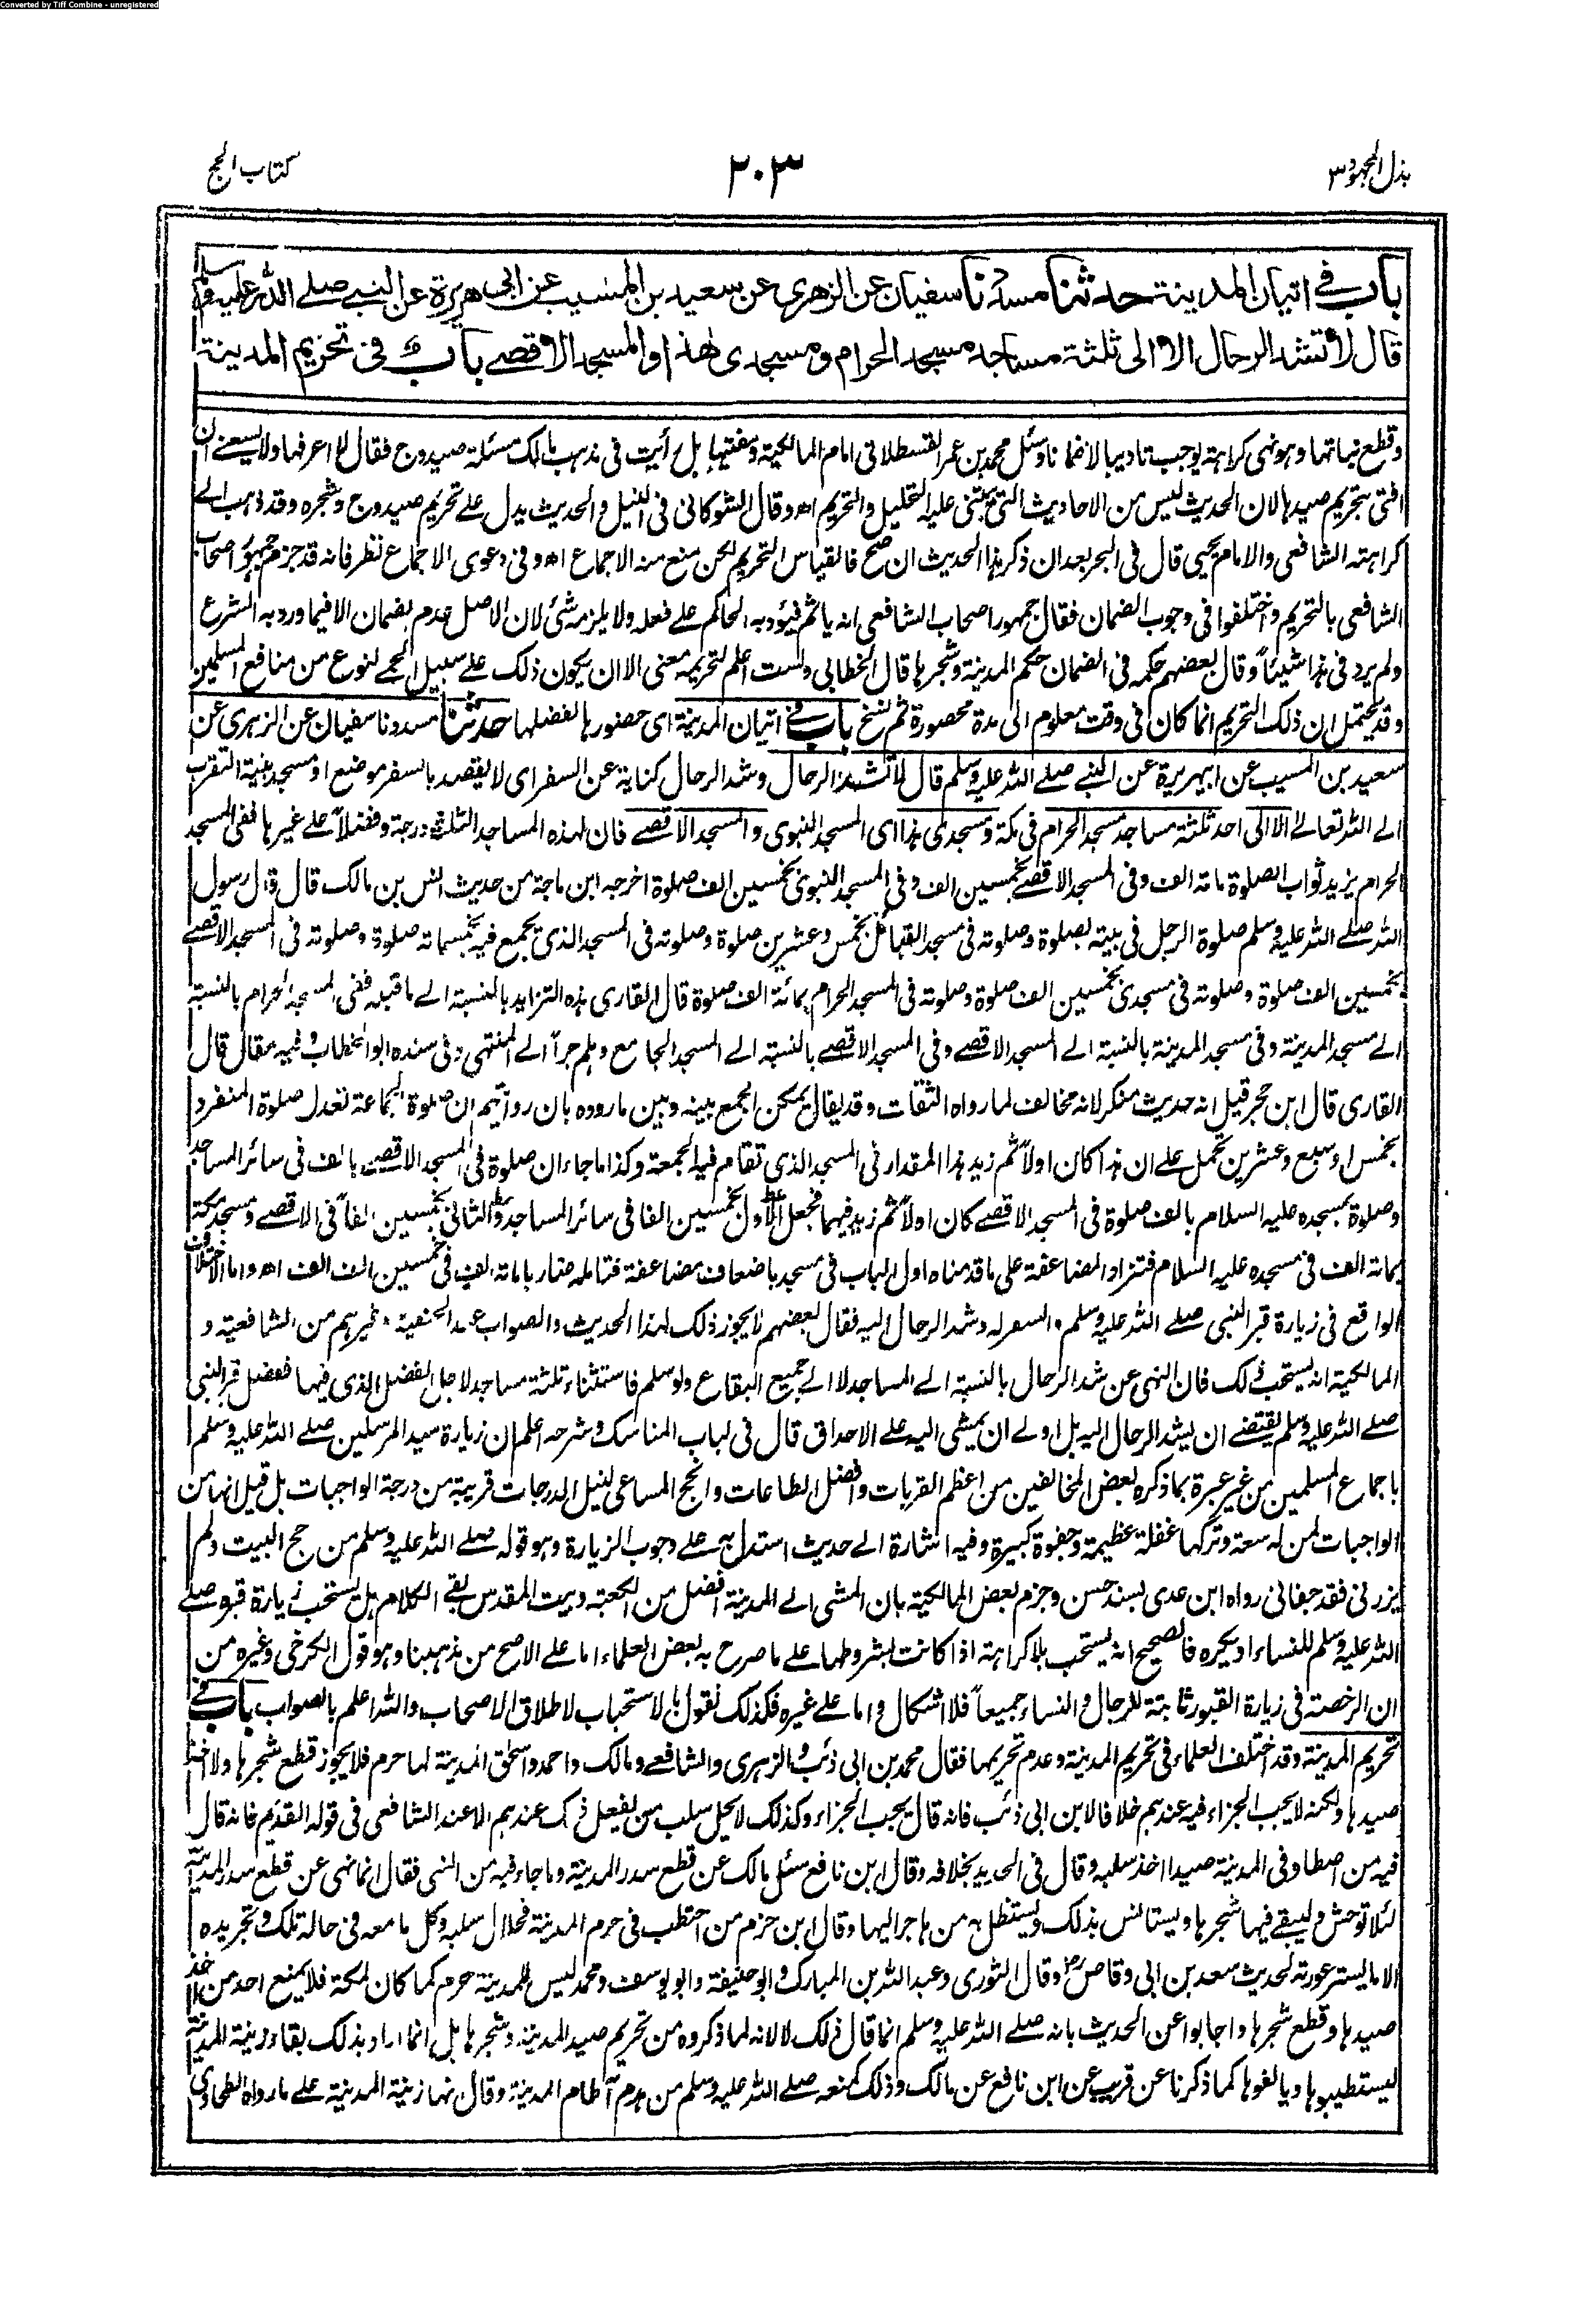 Converted by Tiff Combine - unregistered
بذل المجهود ٣
٢٠٣
كتاب الحج
باب في اتيان المدينة حدثنا مسدد نا سفيان عن الزهري عن سعيد بن المسيب عن ابي هريرة عن النبي صلى الله عليه وسلم
قال لا تشد الرحال الا الى ثلثة مساجد مسجد الحرام ومسجدي هذا والمسجد الاقصى باب في تحريم المدينة
وقطع نباتها وهو نهي كراهة يوجب تاديبا لا ضمانا وسئل محمد بن عمر القسطلاني امام المالكية ومفتيها بل رأيت في مذهب مالك مسئلة صيد وج فقال لا اعرفها ولا يسعني ان
افتي بتحريم صيدها لان الحديث ليس من الاحاديث التي يبتني عليه التحليل والتحريم اه وقال الشوكاني في النيل والحديث يدل على تحريم صيد وج وشجره وقد ذهب الى
كراهته الشافعي والامام يحيى قال في البحر بعد ان ذكر هذا الحديث ان صح فالقياس التحريم لكن منع منه الاجماع اه وفي دعوى الاجماع نظر فانه قد جزم جمهور اصحاب
الشافعي بالتحريم واختلفوا في وجوب الضمان فقال جمهور اصحاب الشافعي انه ياثم فيؤدبه الحاكم على فعله ولا يلزمه شئ لان الاصل عدم الضمان الا فيما ورد به الشرع
ولم يرد في هذا شيئاً وقال بعضهم حكمه في الضمان حكم المدينة وشجرها قال الخطابي ولست اعلم لتحريمه معنى الا ان يكون ذلك على سبيل الحمى لنوع من منافع المسلمين
وقد يحتمل ان ذلك التحريم انما كان في وقت معلوم الى مدة محصورة ثم نسخ باب في اتيان المدينة اي حضورها لفضلها حدثنا مسدد نا سفيان عن الزهري عن
سعيد بن المسيب عن ابي هريرة عن النبي صلى الله عليه وسلم قال لا تشد الرحال وشد الرحال كناية عن السفر اي لا يقصد بالسفر موضع او مسجد بنية التقرب
الى الله تعالى الا الى احد ثلثة مساجد مسجد الحرام في مكة ومسجدي هذا اي المسجد النبوي والمسجد الاقصى فان لهذه المساجد الثلث درجة وفضلاً على غيرها ففي المسجد
الحرام يزيد ثواب الصلوة مائة الف وفي المسجد الاقصى بخمسين الف وفي المسجد النبوي بخمسين الف صلوة اخرجه ابن ماجة من حديث انس بن مالك قال قال رسول
الله صلى الله عليه وسلم صلوة الرجل في بيته بصلوة وصلوته في مسجد القبائل بخمس وعشرين صلوة وصلوته في المسجد الذي يجمع فيه بخمسمائة صلوة وصلوته في المسجد الاقصى
بخمسين الف صلوة وصلوته في مسجدي بخمسين الف صلوة وصلوته في المسجد الحرام بمائة الف صلوة قال القاري هذه التزايد بالنسبة الى ما قبله ففي المسجد الحرام بالنسبة
الى مسجد المدينة وفي مسجد المدينة بالنسبة الى المسجد الاقصى وفي المسجد الاقصى بالنسبة الى المسجد الجامع وهلم جراً الى المنتهى وفي سنده ابو الخطاب وفيه مقال قال
القاري قال ابن حجر قيل انه حديث منكر لانه مخالف لما رواه الثقات وقد يقال يمكن الجمع بينه وبين ما رووه بان روايتهم ان صلوة الجماعة تعدل صلوة المنفرد
بخمس او سبع وعشرين تحمل على ان هذا كان اولاً ثم زيد هذا المقدار في المسجد الذي تقام فيه الجمعة وكذا ما جاء ان صلوة في المسجد الاقصى بالف في سائر المساجد
وصلوة بمسجده عليه السلام بالف صلوة في المسجد الاقصى كان اولاً ثم زيد فيهما فجعل الاول بخمسين الفا في سائر المساجد والثاني بخمسين الفاً في الاقصى ومسجد مكة
بمائة الف في مسجده عليه السلام فتزاد المضاعفة على ما قدمناه اول الباب في مسجد باضعاف مضاعفة فتامله ضاربا مائة الف في خمسين الف الف اه واما الاختلاف
الواقع في زيارة قبر النبي صلى الله عليه وسلم والسفر له وشد الرحال اليه فقال بعضهم لا يجوز ذلك لهذا الحديث والصواب عند الحنفية وغيرهم من الشافعية و
المالكية انه يستحب ذلك فان النهي عن شد الرحال بالنسبة الى المساجد لا الى جميع البقاع ولو سلم فاستثناء ثلثة مساجد لاجل الفضل الذي فيها ففضل قبر النبي
صلى الله عليه وسلم يقتضي ان يشد الرحال اليه بل اولى ان يمشي اليه على الاحداق قال في لباب المناسك وشرحه اعلم ان زيارة سيد المرسلين صلى الله عليه وسلم
باجماع المسلمين من غير عبرة بما ذكره بعض المخالفين من اعظم القربات وافضل الطاعات وانجح المساعي لنيل الدرجات قريبة من درجة الواجبات بل قيل انها من
الواجبات لمن له سعة وتركها غفلة عظيمة وجفوة كبيرة وفيه اشارة الى حديث استدل به على وجوب الزيارة وهو قوله صلى الله عليه وسلم من حج البيت ولم
يزرني فقد جفاني رواه ابن عدي بسند حسن وجزم بعض المالكية بان المشي الى المدينة افضل من الكعبة وبيت المقدس بقي الكلام هل يستحب زيارة قبره صلى
الله عليه وسلم للنساء او يكره فالصحيح انه يستحب بلا كراهة اذا كانت بشروطها على ما صرح به بعض العلماء اما على الاصح من مذهبنا وهو قول الكرخي وغيره من
ان الرخصة في زيارة القبور ثابتة للرجال والنساء جميعاً فلا اشكال واما على غيره فكذلك نقول بالاستحباب لاطلاق الاصحاب والله اعلم بالصواب باب في
تحريم المدينة وقد اختلف العلماء في تحريم المدينة وعدم تحريمها فقال محمد بن ابي ذئب والزهري والشافعي ومالك واحمد واسحق المدينة لها حرم فلا يجوز قطع شجرها ولا اخذ
صيدها ولكنه لا يجب الجزاء فيه عندهم خلافا لابن ابي ذئب فانه قال يجب الجزاء وكذلك لا يحل سلب من يفعل ذلك عندهم الا عند الشافعي في قوله القديم فانه قال
فيه من اصطاد في المدينة صيدا اخذ سلبه وقال في الجديد بخلافه وقال ابن نافع سئل مالك عن قطع سدر المدينة وما جاء فيه من النهي فقال انما نهي عن قطع سدر المدينة
لئلا توحش وليبقى فيها شجرها ويستانس بذلك ويستظل به من هاجر اليها وقال ابن حزم من احتطب في حرم المدينة فحلال سلبه وكل ما معه في حالة تلك وتجريده
الا ما يستر عورته لحديث سعد بن ابي وقاص رض وقال الثوري وعبد الله بن المبارك وابو حنيفة وابو يوسف ومحمد ليس للمدينة حرم كما كان لمكة فلا يمنع احد من اخذ
صيدها وقطع شجرها واجابوا عن الحديث بانه صلى الله عليه وسلم انما قال ذلك لا لانه لما ذكروه من تحريم صيد المدينة وشجرها بل انما اراد بذلك بقاء زينة المدينة
ليستطيبوها ويالفوها كما ذكرنا عن قريب عن ابن نافع عن مالك وذلك كمنعه صلى الله عليه وسلم من هدم آطام المدينة وقال انها زينة المدينة على ما رواه الطحاوي